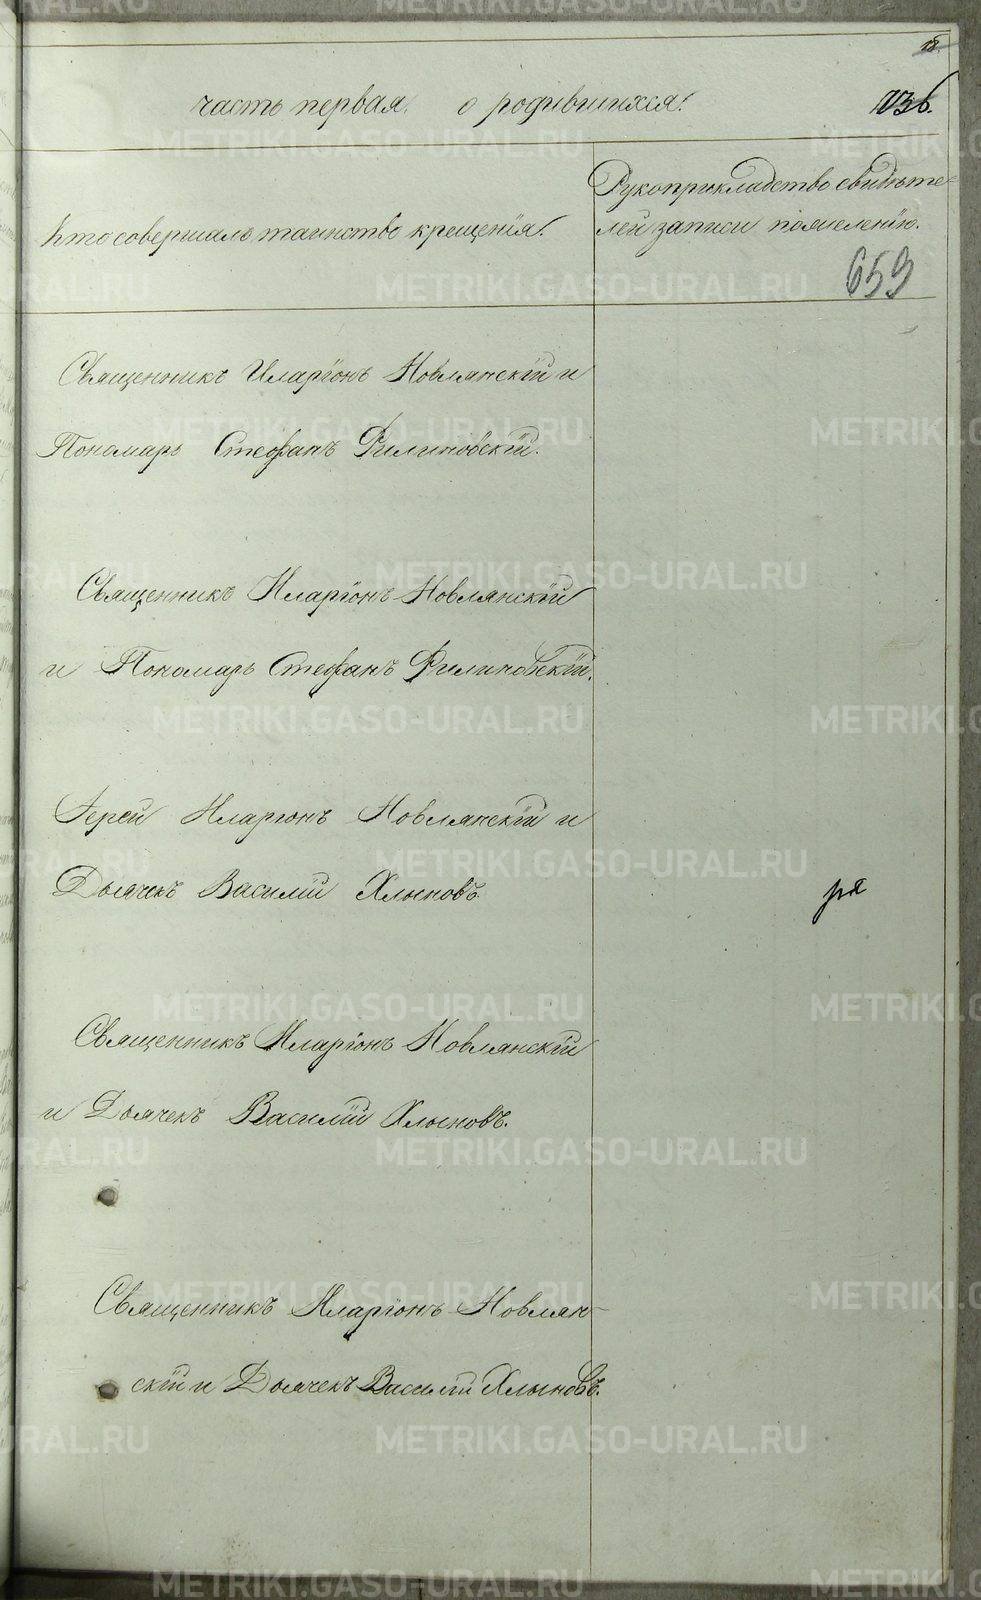 18.
часть первая. о родившихся. 1036.
Кто совершалъ таинство крещенія.
Рукоприкладство свидѣте-
лей записи по желанію.
659
Священникъ Иларіонъ Новлянскій и
Пономарь Стефанъ Филиновскій.
Священникъ Иларіонъ Новлянскій
и Пономарь Стефанъ Филиновскій.
Іерей Иларіонъ Новлянскій и
Дьячекъ Василій Хлыновъ.
ря
Священникъ Иларіонъ Новлянскій
и Дьячекъ Василій Хлыновъ.
Священникъ Иларіонъ Новлян-
скій и Дьячекъ Василій Хлыновъ.
METRIKI.GASO-URAL.RU